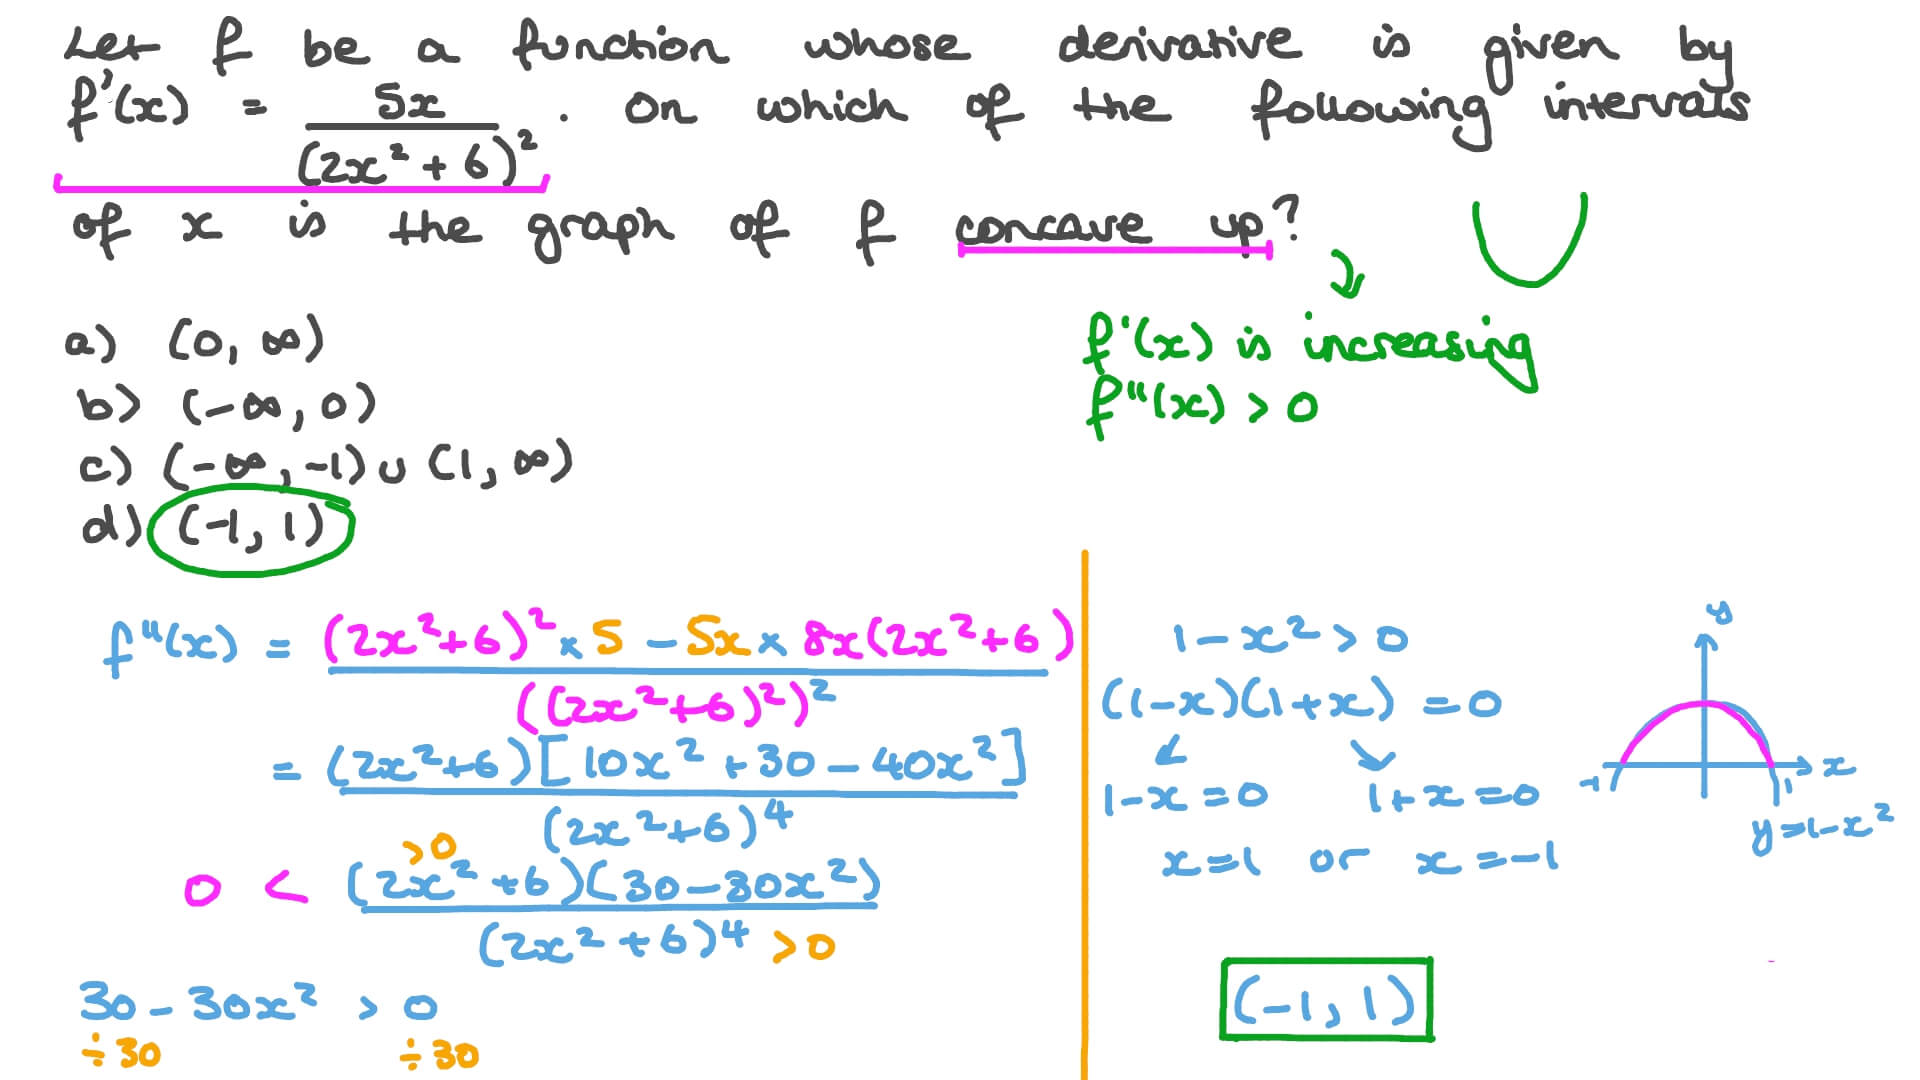 Let f be a function whose derivative is given by
f'(x) = 5x / (2x² + 6)² . On which of the following intervals
of x is the graph of f concave up?
f'(x) is increasing
f''(x) > 0
a) (0, ∞)
b) (-∞, 0)
c) (-∞, -1) ∪ (1, ∞)
d) (-1, 1)
f''(x) = (2x²+6)² × 5 - 5x × 8x(2x²+6) / ((2x²+6)²)²
= (2x²+6)[10x² + 30 - 40x²] / (2x²+6)⁴
>0
0 < (2x² + 6)(30 - 30x²) / (2x² + 6)⁴ >0
30 - 30x² > 0
÷30 ÷30
1 - x² > 0
(1-x)(1+x) = 0
1-x = 0 1+x = 0
x = 1 or x = -1
(-1, 1)
y
x
-1 1
y = 1-x²